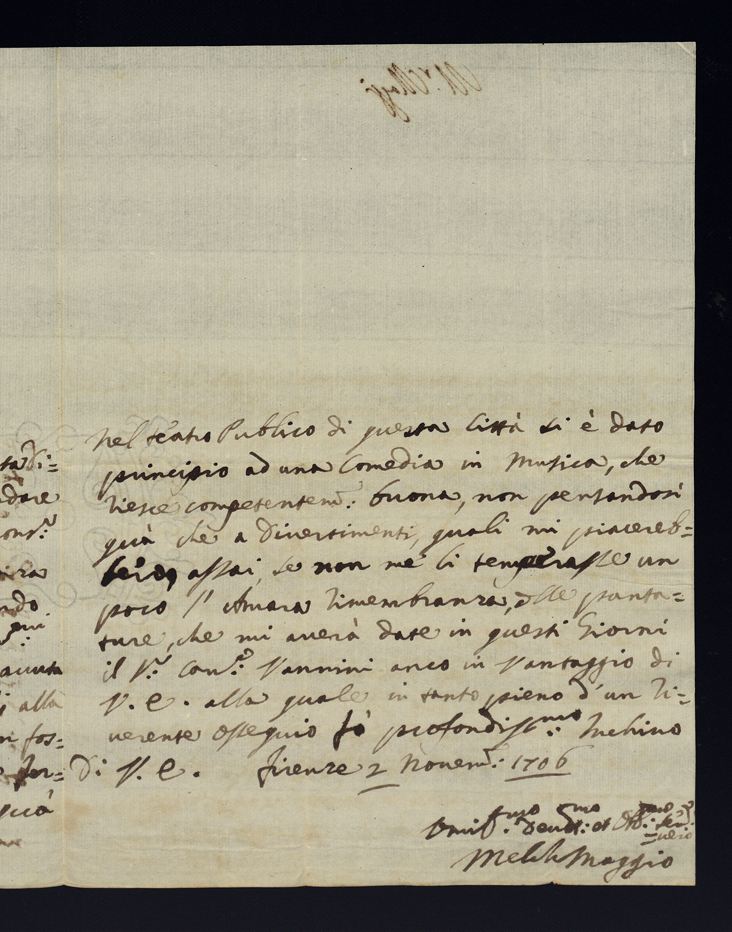 Nel teatro Publico di questa Città si è dato
principio ad una Comedia in Musica, che
riesce competentem: buona, non pensandosi
quà che a Divertimenti, quali mi piacereb=
assai, se non me li temperasse un
poco l'Amara rimembranza, delle punta=
ture, che mi averà date in questi Giorni
il S.r Can.o Vannini anco in Vantaggio di
V. E. alla quale in tanto pieno d'un ri=
verente ossequio fò profondiss.mo Inchino
Di V. E. Firenze 2 Novem: 1706
Melch Maggio